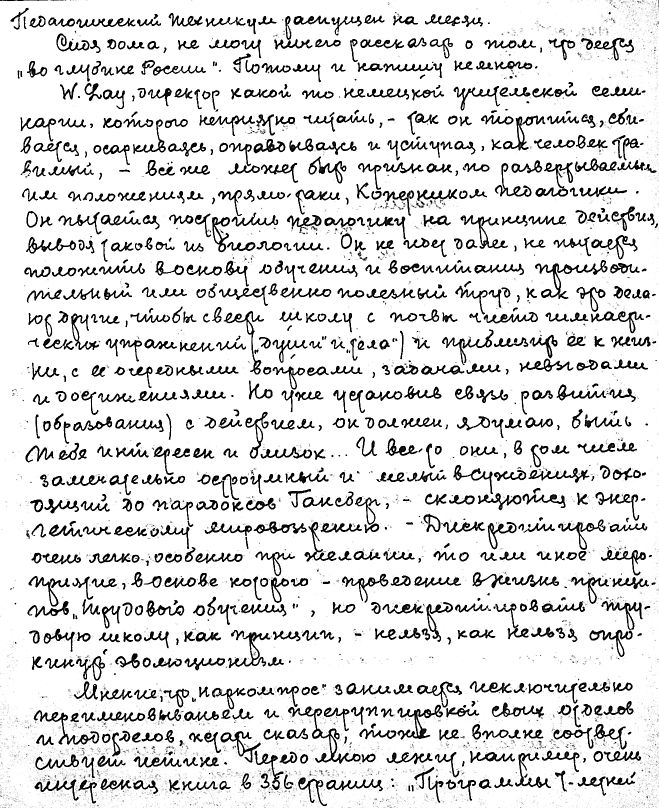 Педагогический техникум распущен на месяц.
Сидя дома, не могу ничего рассказать о том, что деется
„во глубине России". Потому и напишу немного.
W. Lay, директор какой то немецкой учительской семи-
нарии, которого неприятно читать, – так он торопится, сби-
вается, осаркиваясь, оправдываясь и уступая, как человек тра-
вимый, – всё же может быть признан, по развертываемым
им положениям, прямо-таки, Коперником педагогики.
Он пытается построить педагогику на принципе действия,
выводя таковой из биологии. Он не идет далее, не пытается
положить в основу обучения и воспитания производи-
тельный или общественно полезный труд, как это дела-
ют другие, чтобы свести школу с почвы чисто гимнасти-
ческих упражнений („души" и „тела") и приблизить ее к жиз-
ни, с ее очередными вопросами, задачами, невзгодами
и достижениями. Но уже установив связь развития
(образования) с действием, он должен, я думаю, быть
тебе интересен и близок... И все то они, в том числе
замечательно остроумный и смелый в суждениях, дохо-
дящий до парадоксов Гансберг, – склоняются к энер-
гетическому мировоззрению. – Дискредитировать
очень легко, особенно при желании, то или иное меро-
приятие, в основе которого – проведение в жизнь принци-
пов „трудового обучения", но дискредитировать тру-
довую школу, как принцип, – нельзя, как нельзя опро-
кинуть эволюционизм.
Мнение, что „наркомпрос" занимается исключительно
переименовываньем и перегруппировкой своих отделов
и подотделов, кстати сказать, тоже не вполне соответ-
ствует истине. Передо мною лежит, например, очень
интересная книга в 356 страниц: „Программы 7-летней